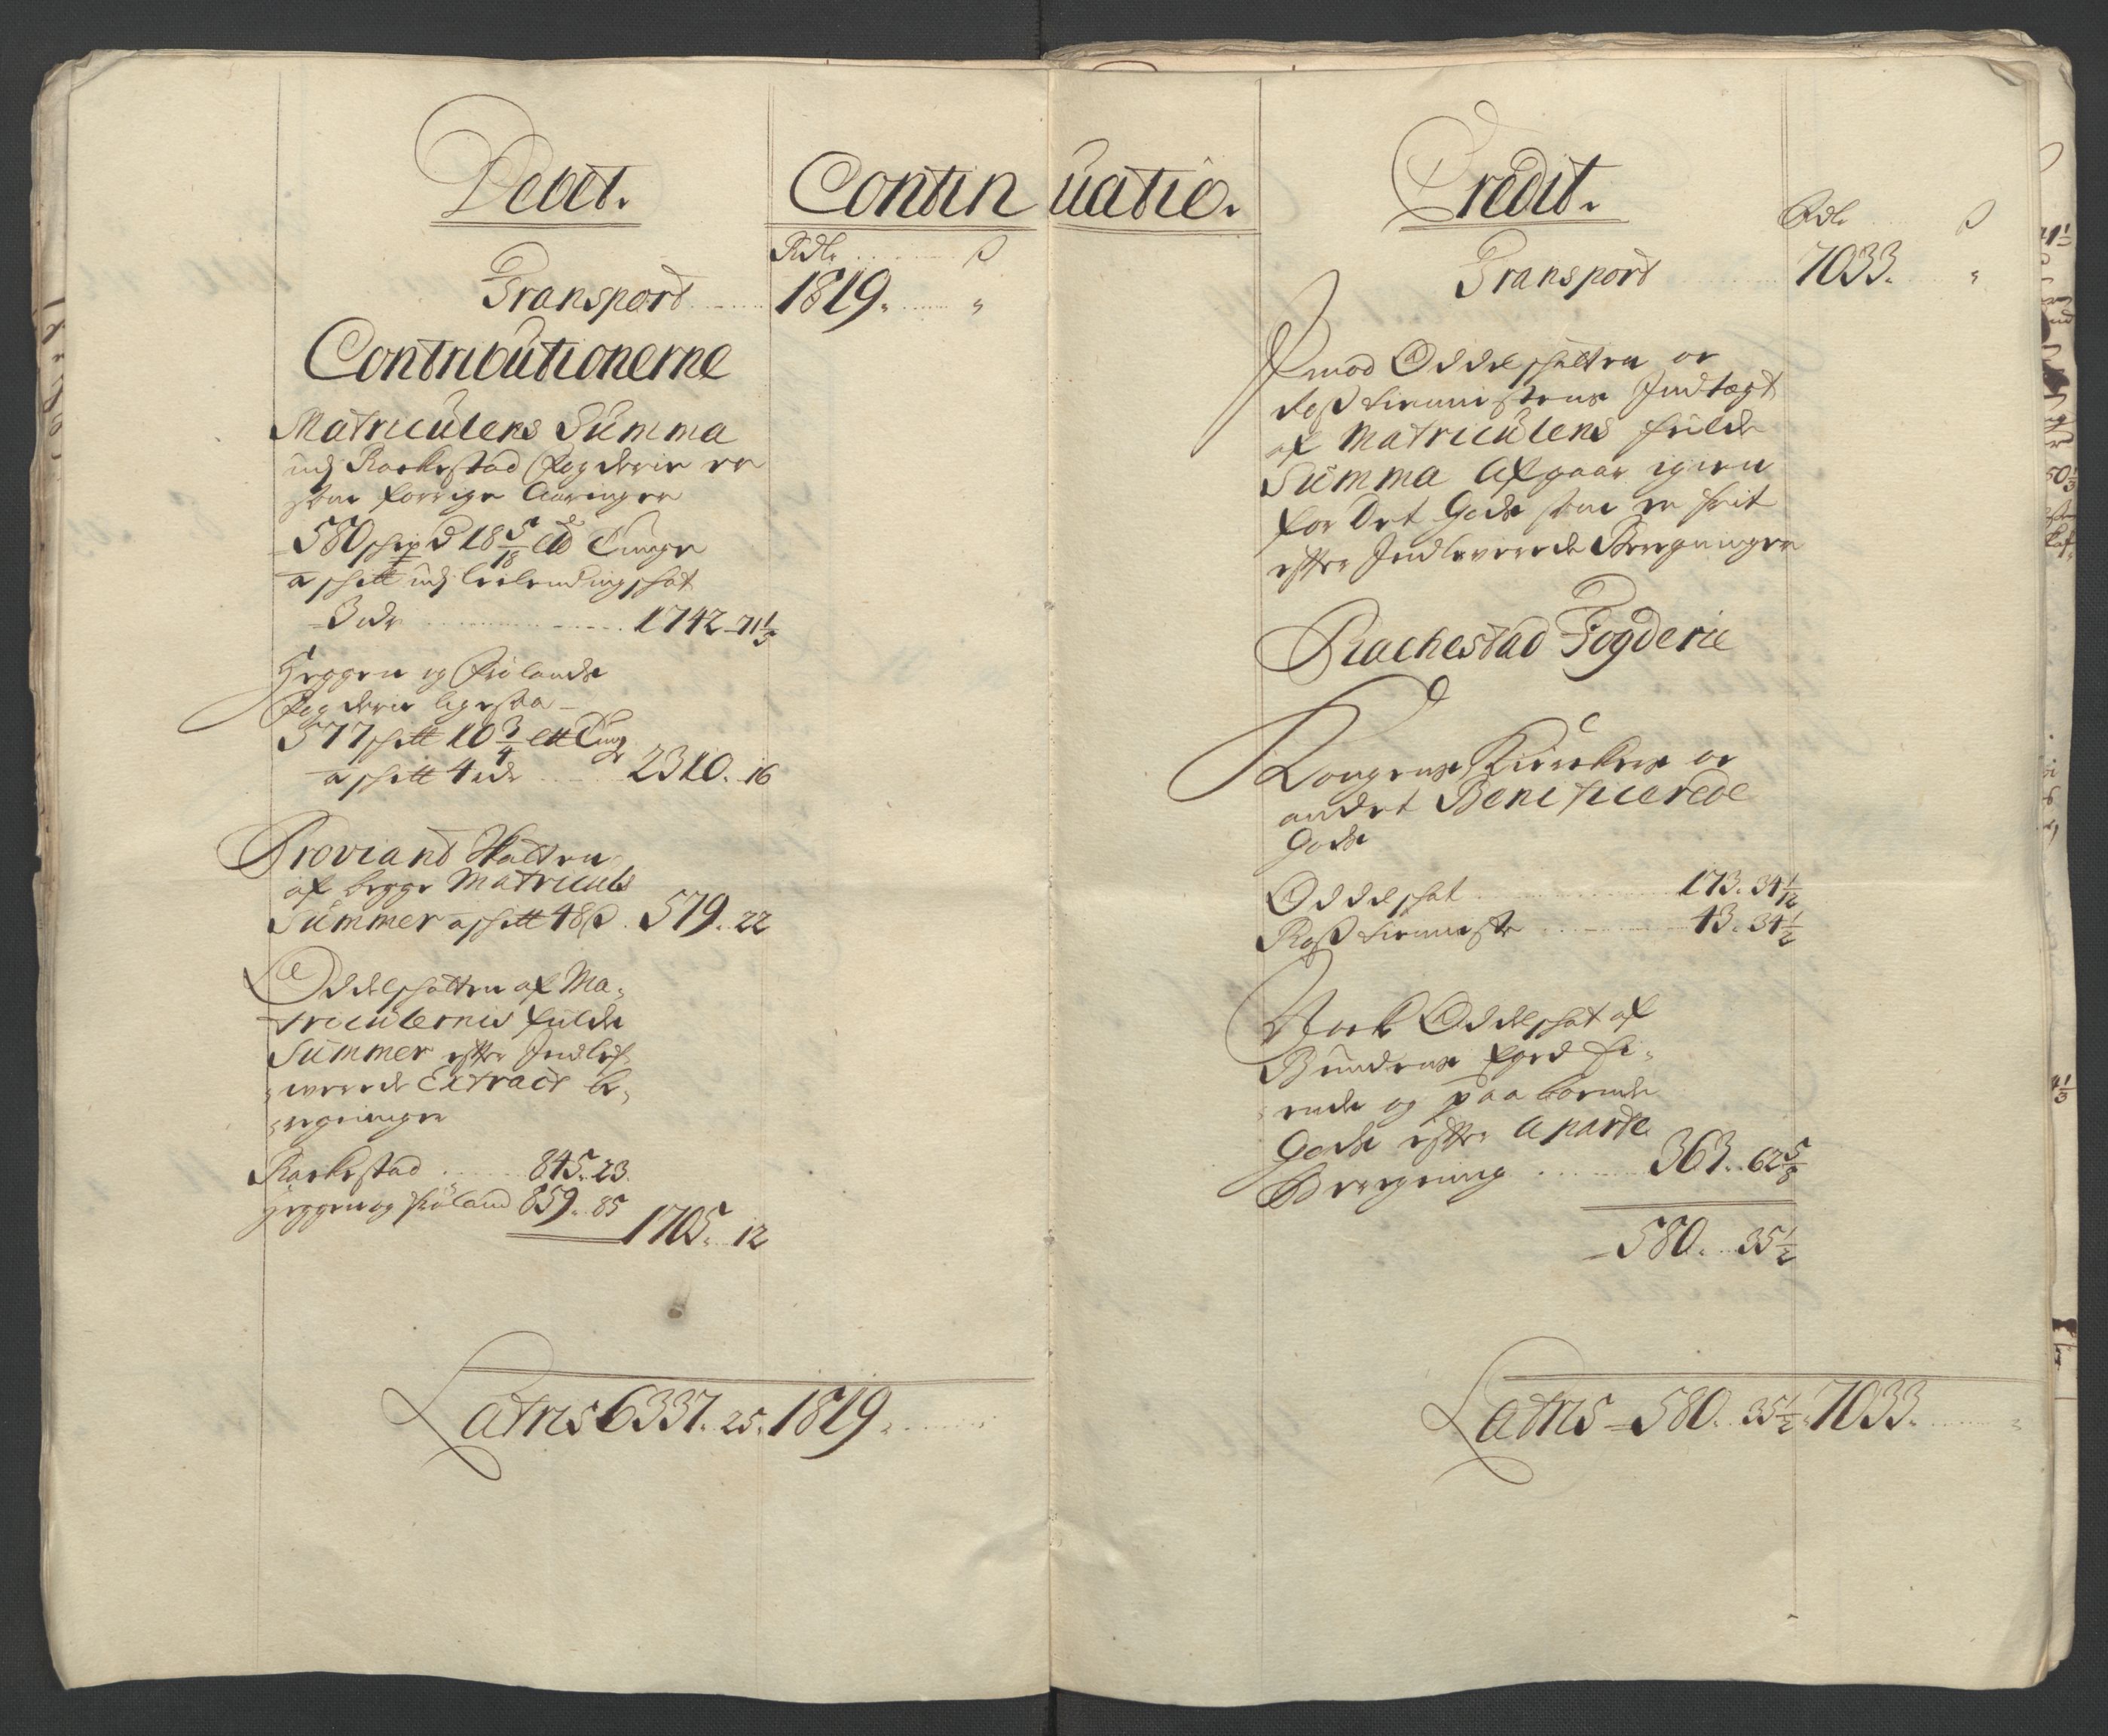 Debet. Continuatio.
Rdlr ß
Transport 1819. "
Contributionerne
Matriculens Summa
udj Rackestad Fogderie er
som forrige Aaringer
580 schip℔ 18 5/18 ℔ Tunge
a schll udj Leilendingschat
3 rdr 1742 - 71 1/3
Heggen og Frølands
Fogderie ligesaa
577 schll 10 3/4 ltt Tung
a schll 4 rdr 2310. 16
Proviand Skatten
af begge Matriculs
Summer a schll 48 ß. 579. 22
Oddelschatten af Ma-
triculernis fulde
Summer efter Indlef-
werede Extract be-
regninger
Rackestad 845. 23.
Heggen og Frøland 859. 85 1705. 12
Latris 6337. 25. 1819.
Credit.
Rdlr ß
Transport 7033. "
Imod Oddelschatten oc
Roßtiennistens Indtægt
af Matriculens fulde
Summa Afgaar igien
for Det Gods som er frit
efter Indleverede Beregninger
Rachestad Fogderie
Kongens Kierckens oc
andet Beneficerede
Gods
Oddelschat 173. 34 1/12
Roßtienniste 43. 34 1/2
Noch Oddelschat af
Bøndens Eged fri-
ende og paaboende
Gods efter aparte
Beregning 363. 62 5/8
580. 35 1/2
Latris 580. 35 1/2. 7033. "